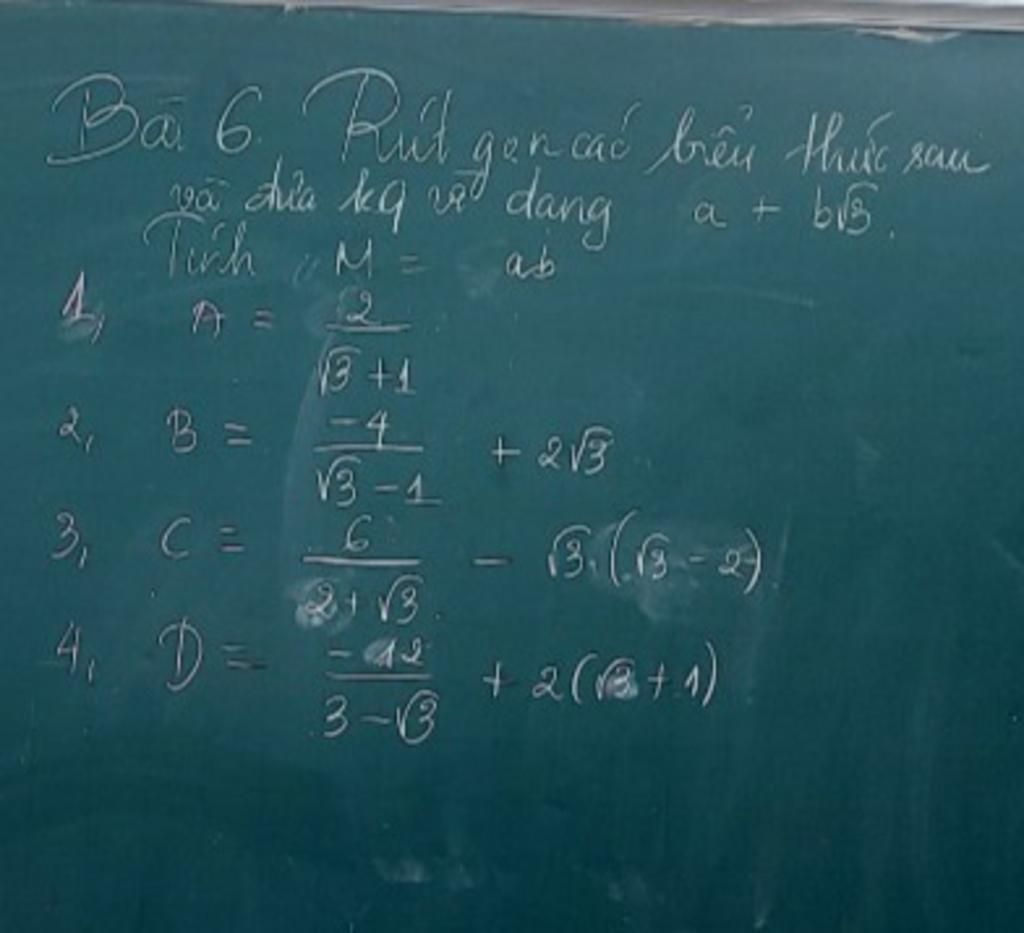 Bài 6. Rút gọn các biểu thức sau
và đưa kq về dạng a + b√3.
Tính M = ab
1, A = 2/(√3 + 1)
2, B = -4/(√3 - 1) + 2√3
3, C = 6/(2 + √3) - √3.(√3 - 2)
4, D = -12/(3 - √3) + 2(√3 + 1)